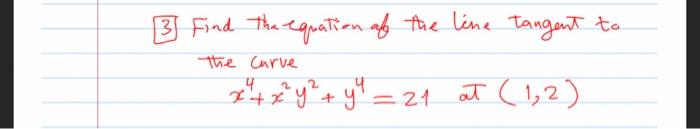 [3] Find the equation of the line tangent to
the curve
x⁴ + x²y² + y⁴ = 21 at (1,2)